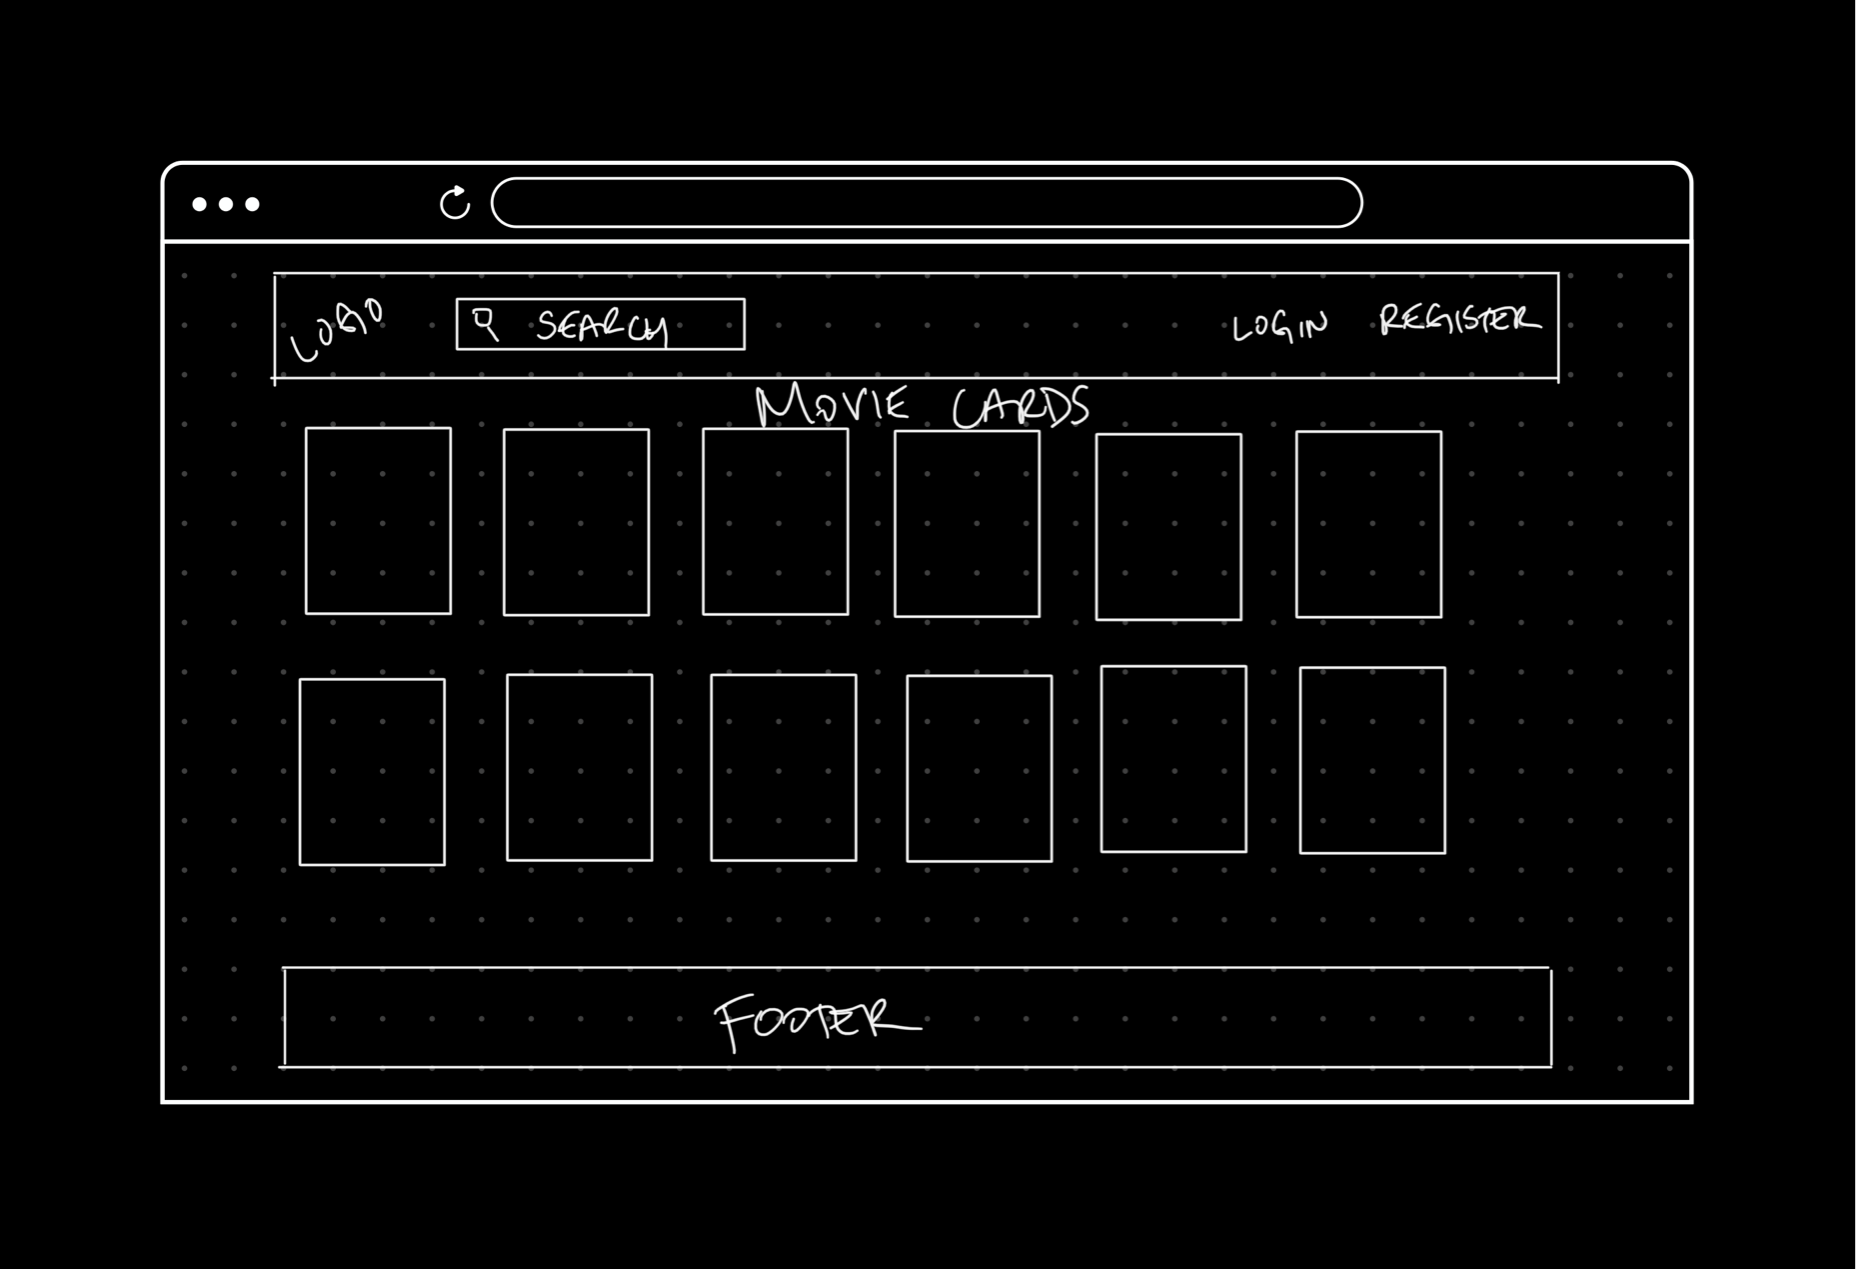 LOGO
SEARCH
LOGIN
REGISTER
MOVIE CARDS
FOOTER